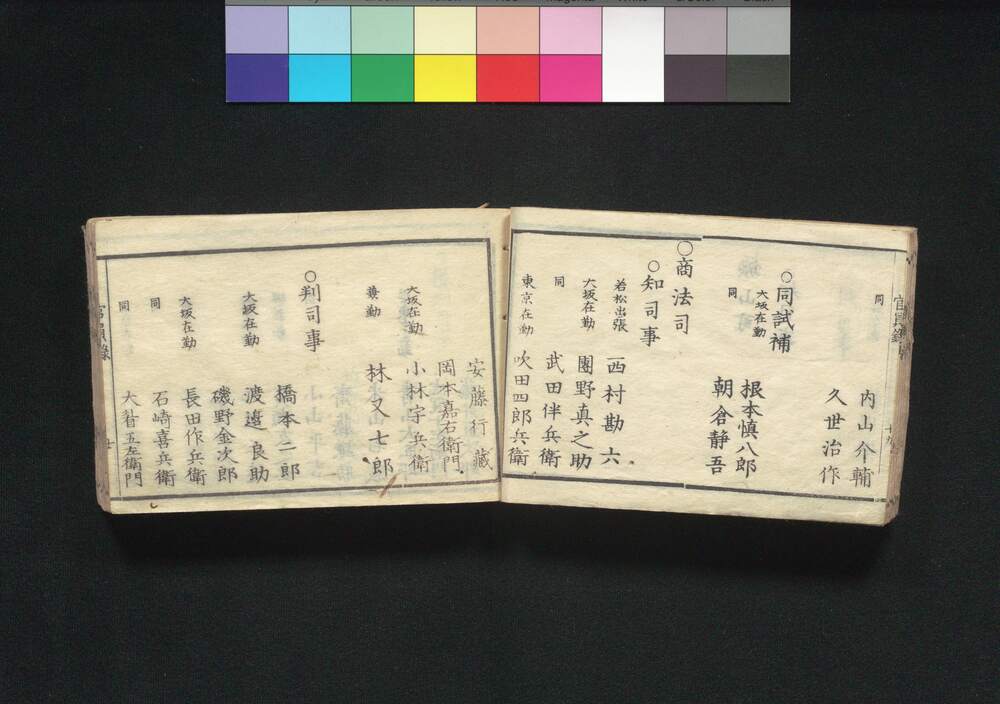 同
内山介輔
久世治作
○同試補
大坂在勤
根本慎八郎
同
朝倉静吾
○商法司
○知司事
若松出張
西村勘六
大坂在勤
團野真之助
同
武田伴兵衛
東京在勤
吹田四郎兵衛
安藤行藏
岡本嘉右衛門
大坂在勤
小林宇兵衛
兼勤
林又七郎
○判司事
橋本二郎
大坂在勤
渡邉良助
磯野金次郎
大坂在勤
長田作兵衛
同
石崎喜兵衛
同
大沓五左衛門
官員錄